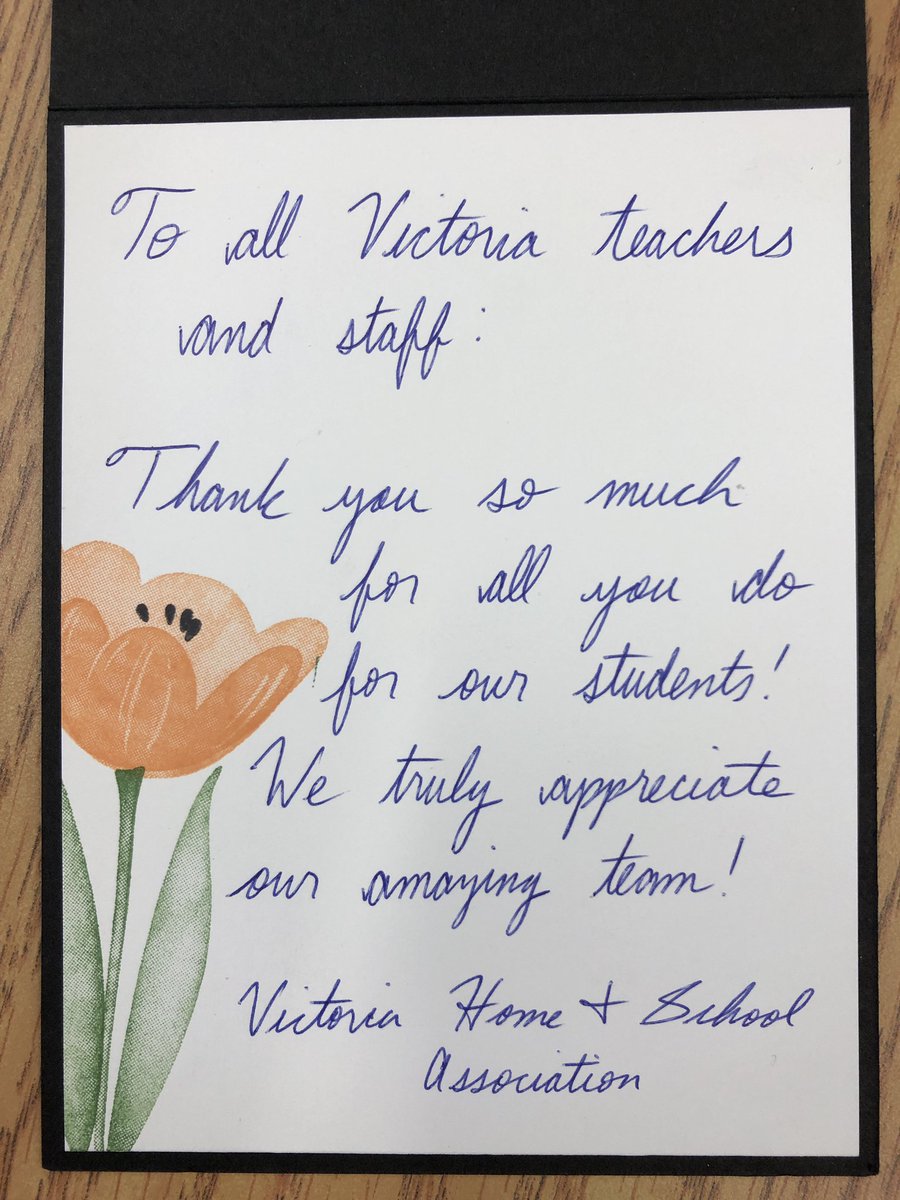 To all Victoria teachers
and staff:
Thank you so much
for all you do
for our students!
We truly appreciate
our amazing team!
Victoria Home + School
Association